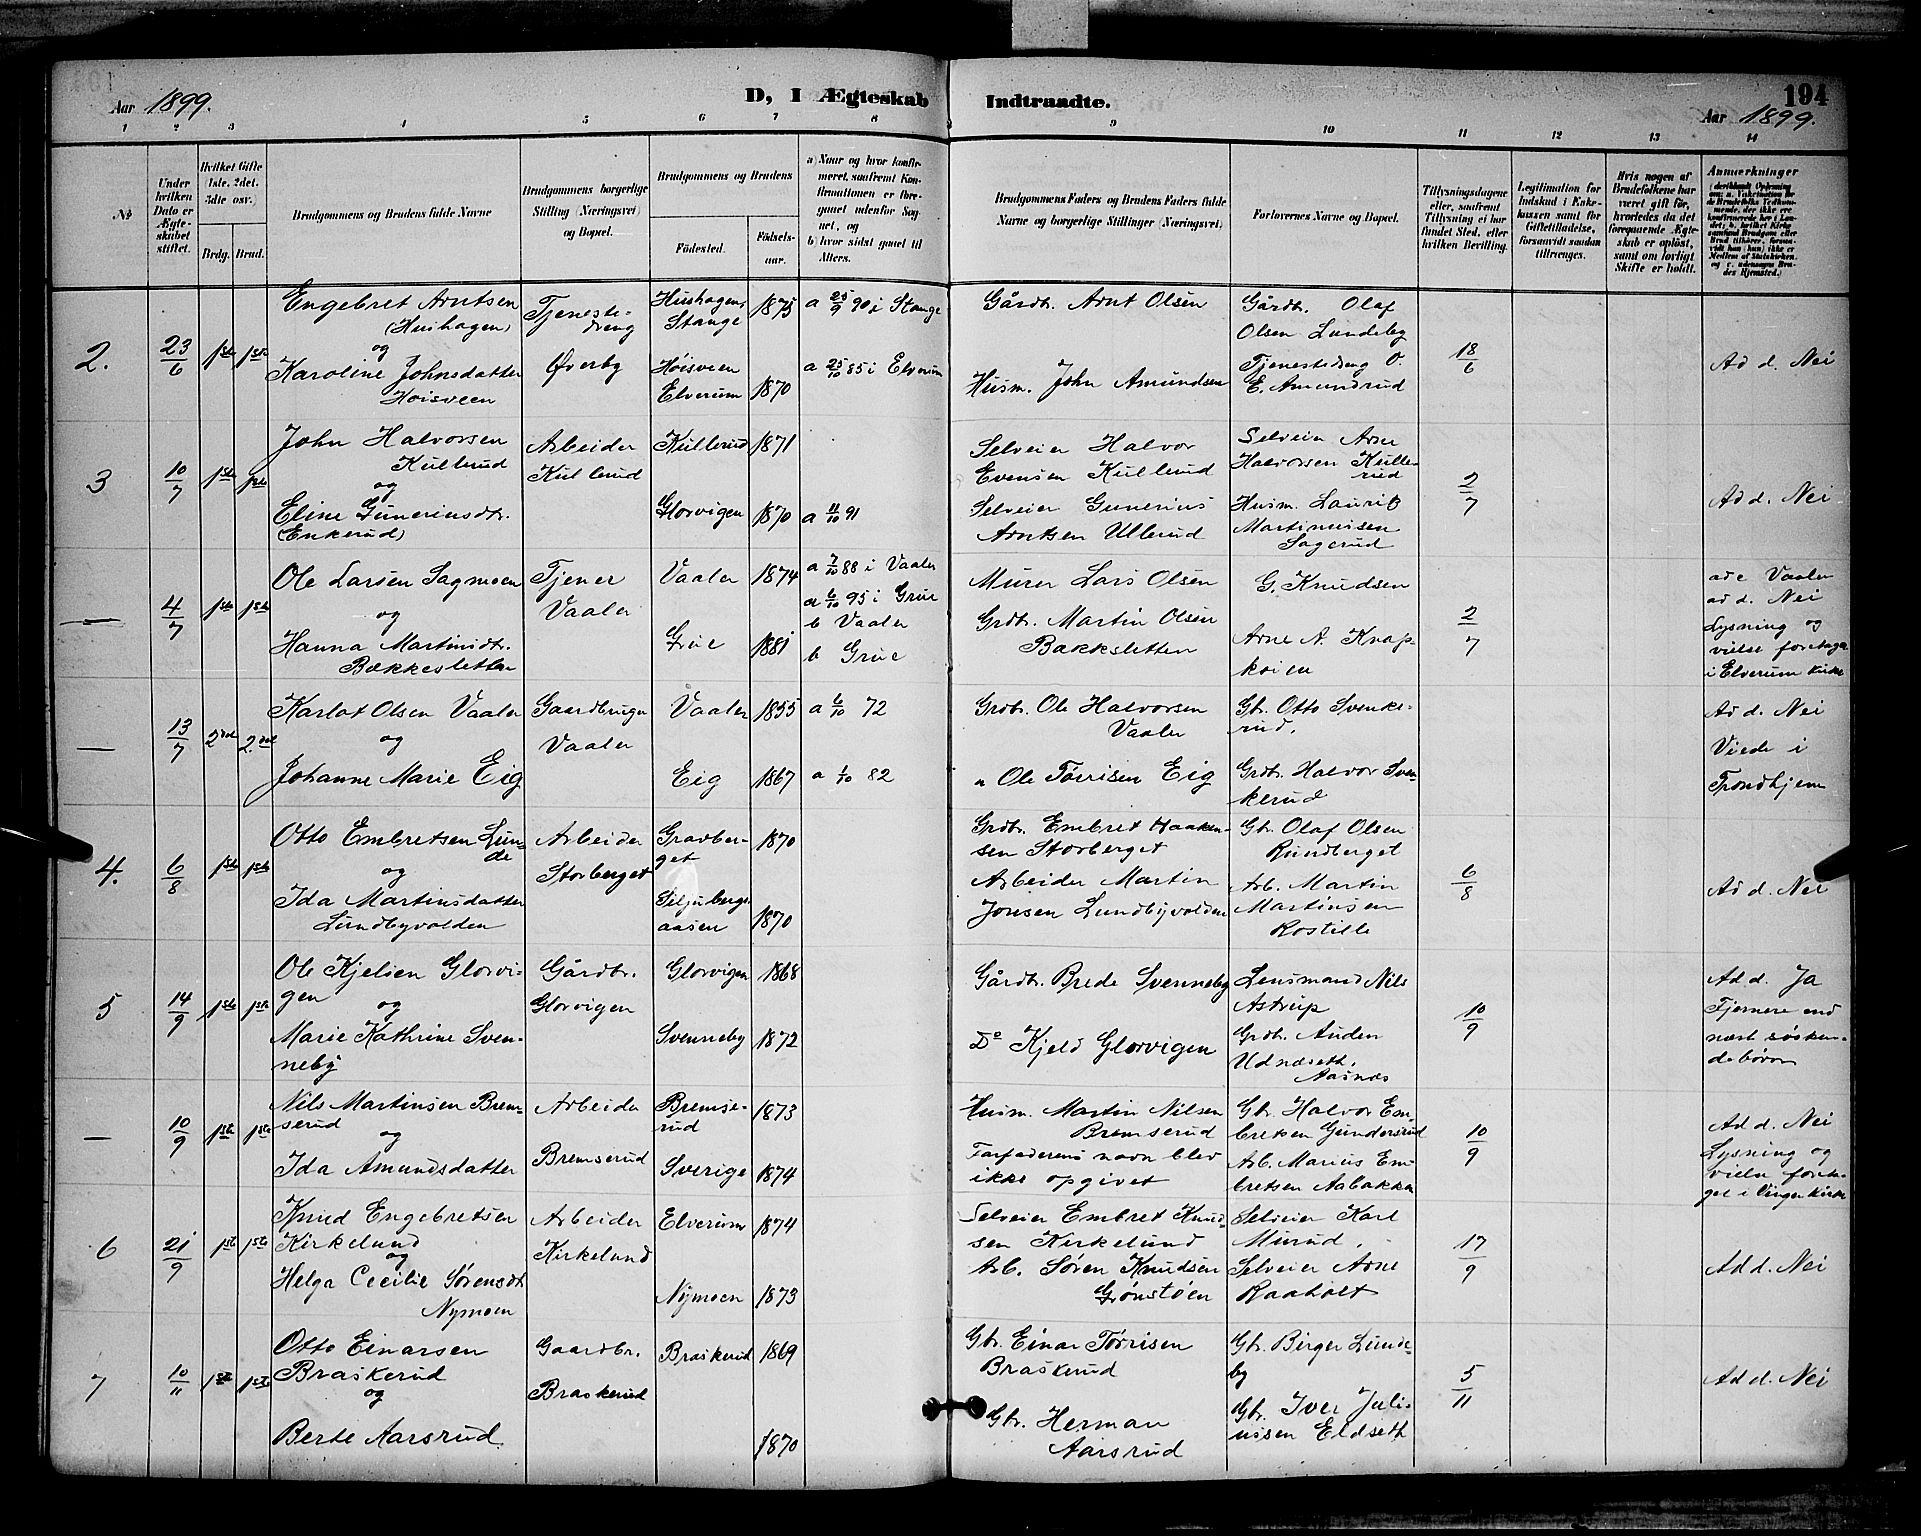 Aar 1899.
D, I Ægteskab
Indtraadte.
194
Aar 1899.
1 2 3 4 5 6 7 8 9 10 11 12 13 14
No
Under hvilken Dato er Ægteskabet stiftet.
Hvilket Gifte (1ste. 2det. 3die osv.)
Brdg. Brud.
Brudgommens og Brudens fulde Navne
Brudgommens borgerlige Stilling (Næringsvei) og Bopæl.
Brudgommens og Brudens
Fødested.
Fødselsaar.
a) Naar og hvor konfirmeret, saafremt Konfirmationen er foregaaet udenfor Sognet, og
b) hvor sidst gaaet til Alters.
Brudgommens Faders og Brudens Faders fulde Navne og borgerlige Stillinger (Næringsvei)
Forlovernes Navne og Bopæl.
Tillysningsdagene eller, saafremt Tillysning ei har fundet Sted, efter hvilken Bevilling.
Legitimation for Indskud i Enkekassen samt for Giftetilladelse, forsaavidt saadan tiltrænges.
Hvis nogen af Brudefolkene har været gift før, hvorledes da det foregaaende Ægteskab er opløst, samt om lovligt Skifte er holdt.
Anmærkninger
2.
23/6
1ste 1ste
Engebret Arntsen
(Hushagen)
og
Karoline Johnsdatter
Hoisveen
Tjeneste-
dreng
Øverby
Hushagen,
Stange
Hoisveen
Elverum
1875
1870
a 25/9 90 i Stange
a 25/10 85 i Elverum
Gårdbr. Arnt Olsen
Husm. John Amundsen
Gårdbr. Olaf
Olsen Lundeby
Tjenestedreng O.
E. Amundrud
18/6
Ad d. Nei
3
10/7
1ste 1ste
John Halvorsen
Kullerud
og
Eline Guneriusdtr.
(Enkerud)
Arbeider
Kullerud
Kullerud
Glorvigen
1871
1870
a 11/10 91
Selveier Halvor
Evensen Kullerud
Selveier Gunerius
Arntsen Ullerud
Selveier Arne
Halvorsen Kulle-
rud
Husm. Laurits
Martinussen
Sagerud
2/7
Ad d. Nei
—
4/7
1ste 1ste
Ole Larsen Sagmoen
og
Hanna Martinidtr.
Bækkesletten
Tjener
Vaaler
Vaaler
Grue
1874
1881
a 7/10 88 i Vaaler
a 6/10 95 i Grue
b Vaaler
b Grue
Murer Lars Olsen
Grdbr. Martin Olsen
Bakksletten
G. Knudsen
Arne A. Knap-
koien
2/7
ad c Vaaler
ad d. Nei
Lysning og
vielse foretaget
i Elverum kirke
—
13/7
2det 2det
Karlot Olsen Vaaler
og
Johanne Marie Eig
Gaardbruger
Vaaler
Vaaler
Eig
1855
1867
a 6/10 72
a 1/10 82
Grdbr. Ole Halvorsen
Vaaler
" Ole Tørrisen Eig
Gbr. Otto Svenke-
rud.
Grdbr. Halvor Sven-
kerud
Ad d. Nei
Viede i
Trondhjem
4.
6/8
1ste 1ste
Otto Embretsen Lun-
de
og
Ida Martinsdatter
Lundbyvolden
Arbeider
Storberget
Gravber-
get
Siljubergs-
aasen
1870
1870
Grdbr. Embret Haaken-
sen Storberget
Arbeider Martin
Jonsen Lundbyvolden
Gbr. Olaf Olsen
Rundberget
Arb. Martin
Martinsen
Rostille
6/8
Ad d. Nei
5
14/9
1ste 1ste
Ole Kjelsen Glorvi-
gen
og
Marie Kathrine Sven-
neby
Gårdbr.
Glorvigen
Glorvigen
Svenneby
1868
1872
Gårdbr. Brede Svenneby
Do Kjeld Glorvigen
Lensmand Nils
Astrup
Grdbr. Auden
Udnæseth.
Aasnæs
10/9
Ad d. Ja
Fjernere end
næst søsken-
debørn
—
10/9
1ste 1ste
Nils Martinsen Brem-
serud
og
Ida Amundsdatter
Arbeider
Bremserud
Bremse-
rud
Sverige
1873
1874
Husm. Martin Nilsen
Bremserud
Farfaderens navn blev
ikke opgivet
Gbr. Halvor Em-
bretsen Gundersrud
Arb. Marius Em-
bretsen Aabakken
10/9
Ad d. Nei
Lysning og
vielse foreta-
get i Vinger kirke
6
21/9
1ste 1ste
Knud Engebretsen
Kirkelund
og
Helga Cecilie Sørensdtr
Nymoen
Arbeider
Kirkelund
Elverum
Nymoen
1874
1873
Selveier Embret Knud-
sen Kirkelund
Arb. Søren Knudsen
Grønstøen
Selveier Karl
Murud.
Selveier Arne
Raaholt
17/9
Ad d. Nei
7
10/11
1ste 1ste
Otto Einarsen
Braskerud
og
Berte Aarsrud
Gaardbr.
Braskerud
Braskerud
1869
1870
Gbr. Einar Tørrisen
Braskerud
Gbr. Herman
Aarsrud
Gbr. Birger Lunde-
by
Gbr. Iver Juli-
ussen Eldseth
5/11
Ad d. Nei